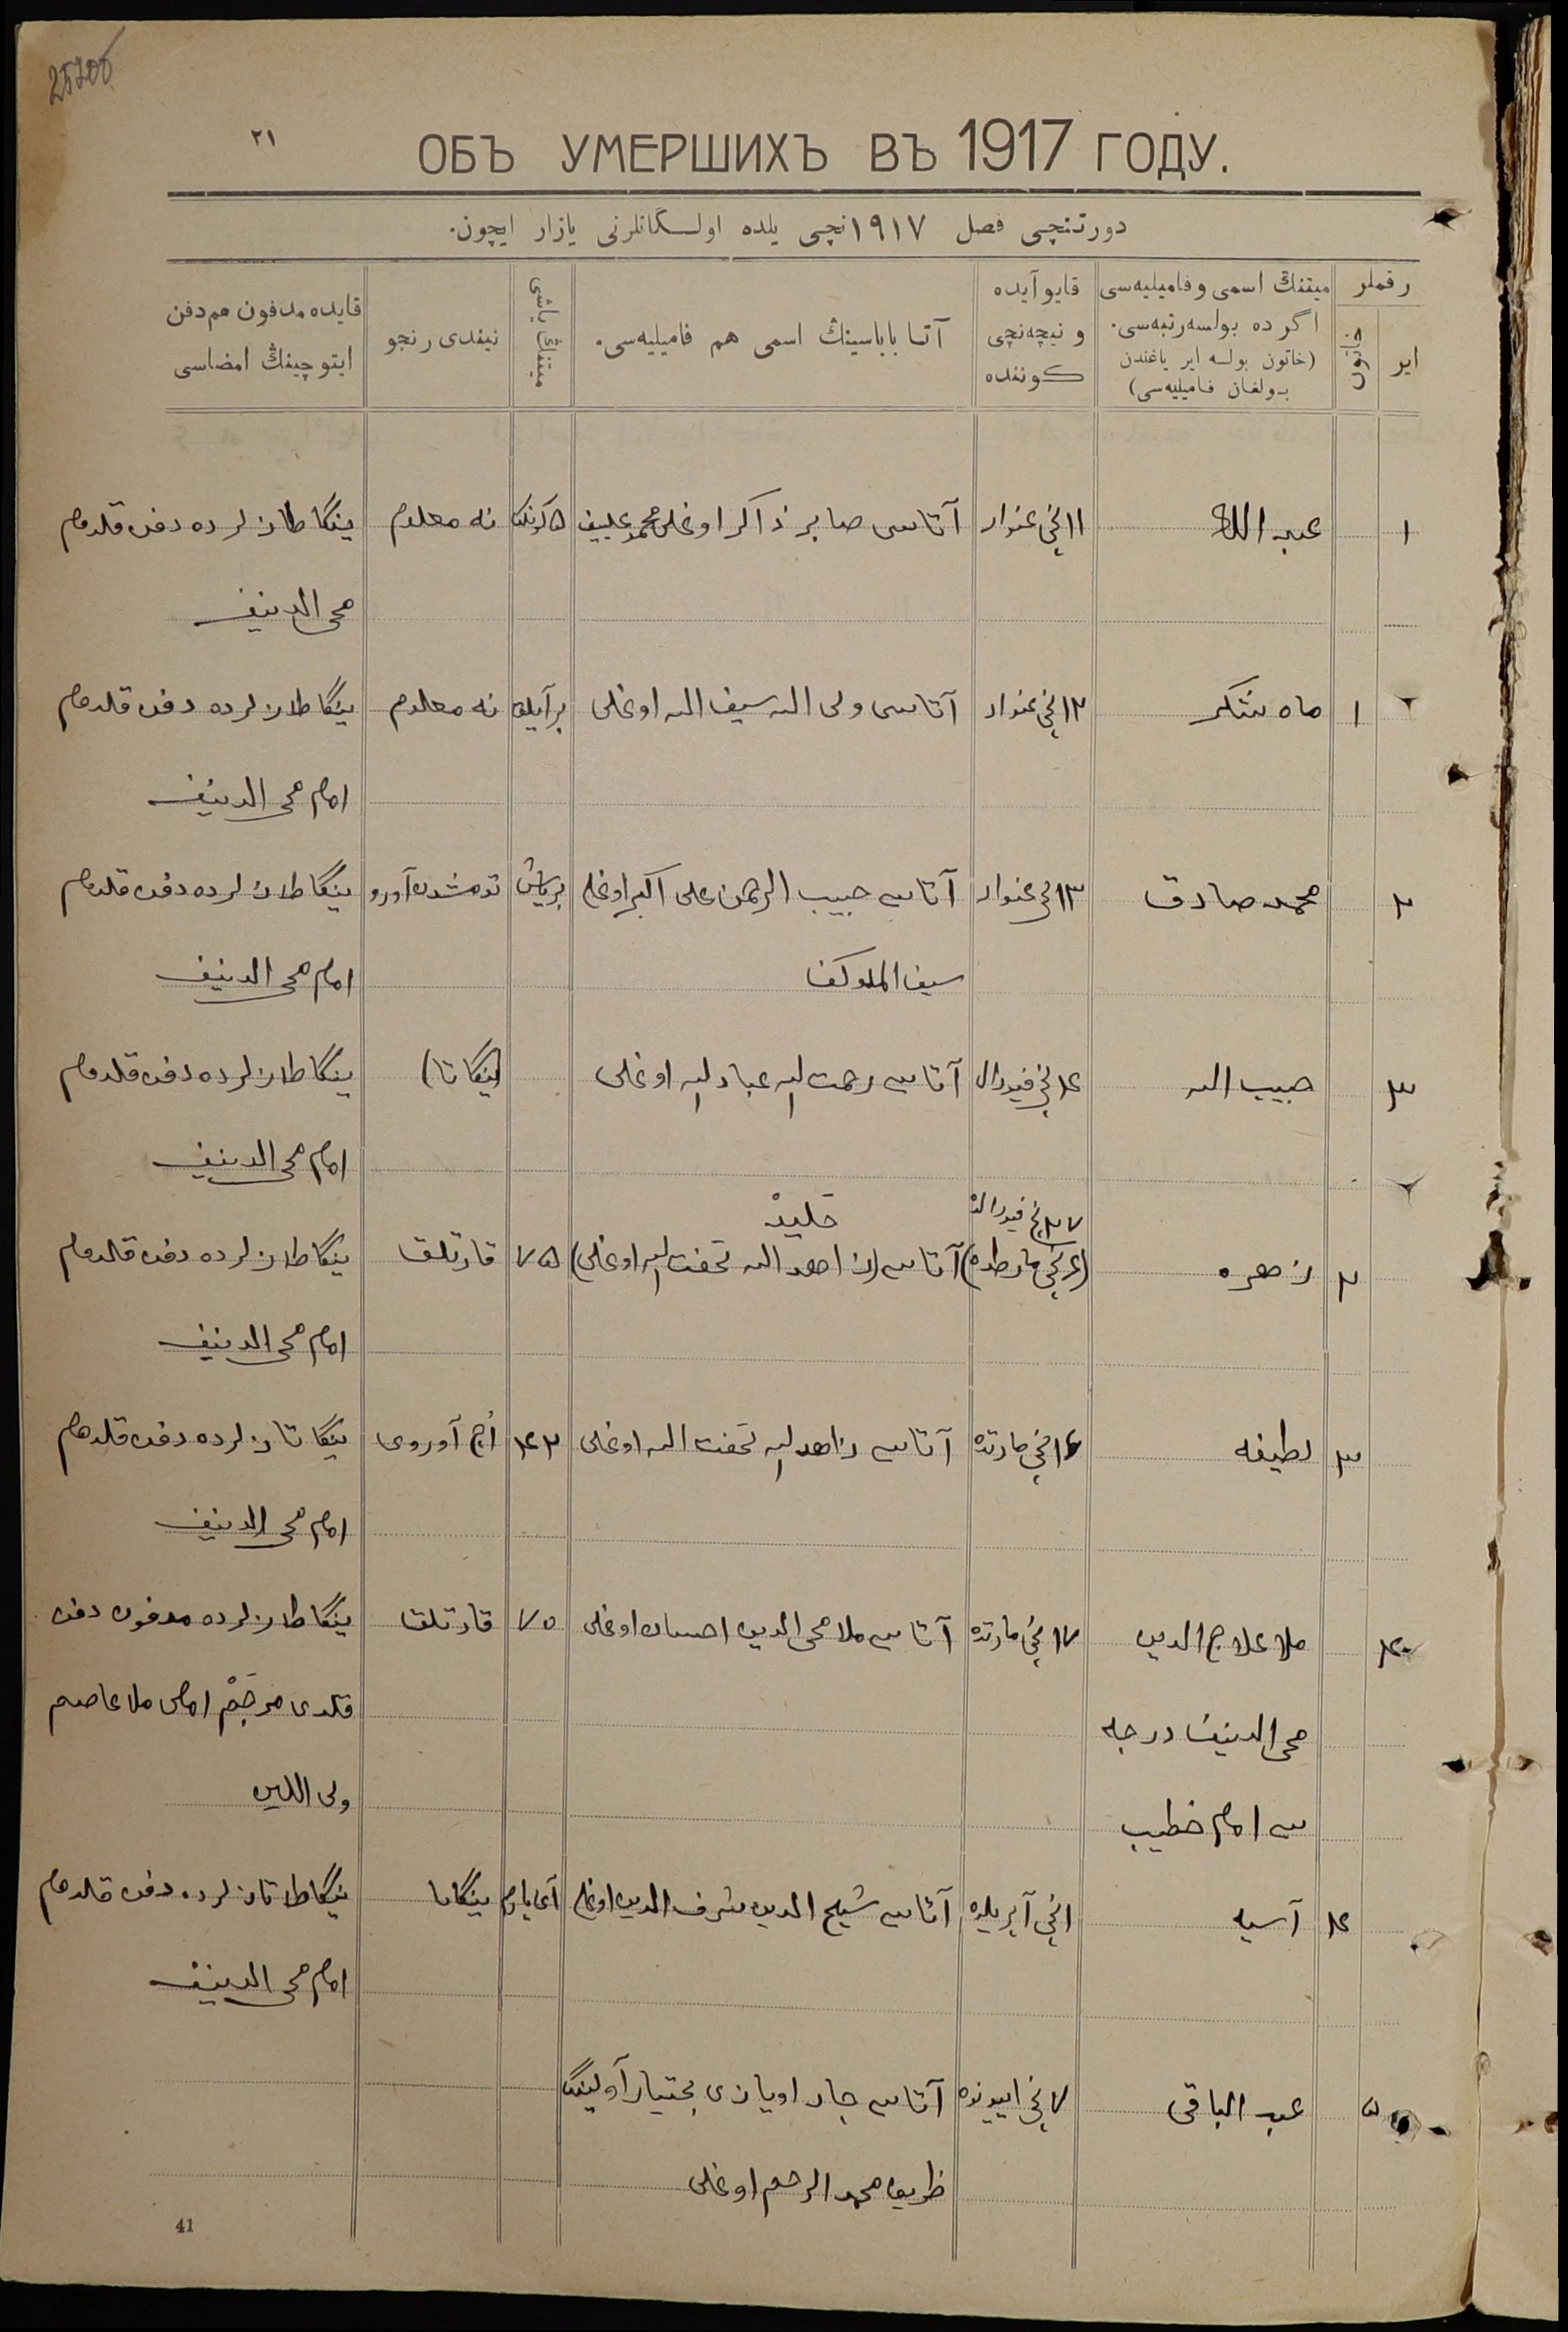 ٢١
ОБЪ УМЕРШИХЪ ВЪ 1917 ГОДУ.
دورتنچی فصل ١٩١٧نچی یلده اولسگانلرنی یازار ایچون.
رقملر
ایر
خاتون
میتنڭ اسمی و فامیلیه‌سی
اگر ده بولسه رتبه‌سی.
(خاتون بولسه ایر یاغندن
بولغان فامیلیه‌سی)
قایو آیده
و نیچه‌نچی
کوننده
آتا باباسینڭ اسمی هم فامیلیه‌سی.
میتنڭ یاشی
نیندی رنجو
قایده مدفون هم دفن
ایتوچینڭ امضاسی
١ عبد الله ١١نچی غنوار آتاسی صابر ذاکر اوغلی محمد علییف ٥ کونلک نه معلوم ینگا طازلرده دفن قلدوم
محی الدینف
١ ماه ١٢نچی غنوار آتاسی ولی الله سیف الله اوغلی بر آیلق نه معلوم ینگا طازلرده دفن قلدوم
امام محی الدینف
٢ محمد صادق ١٣نچی غنوار آتاسی حبیب الرحمن علی اکبر اوغلی بر یاش آورو ینگا طازلرده دفن قلدوم
سیف الملوکف امام محی الدینف
٣ حبیب الله نچی فیورال آتاسی رحمت الله عباد الله اوغلی ینگا طازلرده دفن قلدوم
امام محی الدینف
٢٧نچی فیورالد
٢ زهره (٤نچی مارطده) آتاسی (زاهد الله تحفت الله اوغلی) ٧٥ قارتلق ینگا طازلرده دفن قلدوم
امام محی الدینف
٣ لطیفه ١٦نچی مارتده آتاسی زاهد الله تحفت الله اوغلی ٤٣ آوروی ینگا تازلرده دفن قلدوم
امام محی الدینف
٤ ملا علاج الدین ١٧نچی مارتده آتاسی ملا محی الدین احسان اوغلی ٧٥ قارتلق ینگا طازلرده مدفون دفن
محی الدینف درجه قلدی امام ملا عاصم
سی امام خطیب ولی اللین
٤ آسیه ١نچی آپریلده آتاسی شیخ الدین شرف الدین اوغلی آی یارم ینگا دفن قلدوم
امام محی الدینف
٥ عبد الباقی ٧نچی اییونده آتاسی چار اویازی بختیار آولینڭ
ظریف محمد الرحیم اوغلی
41